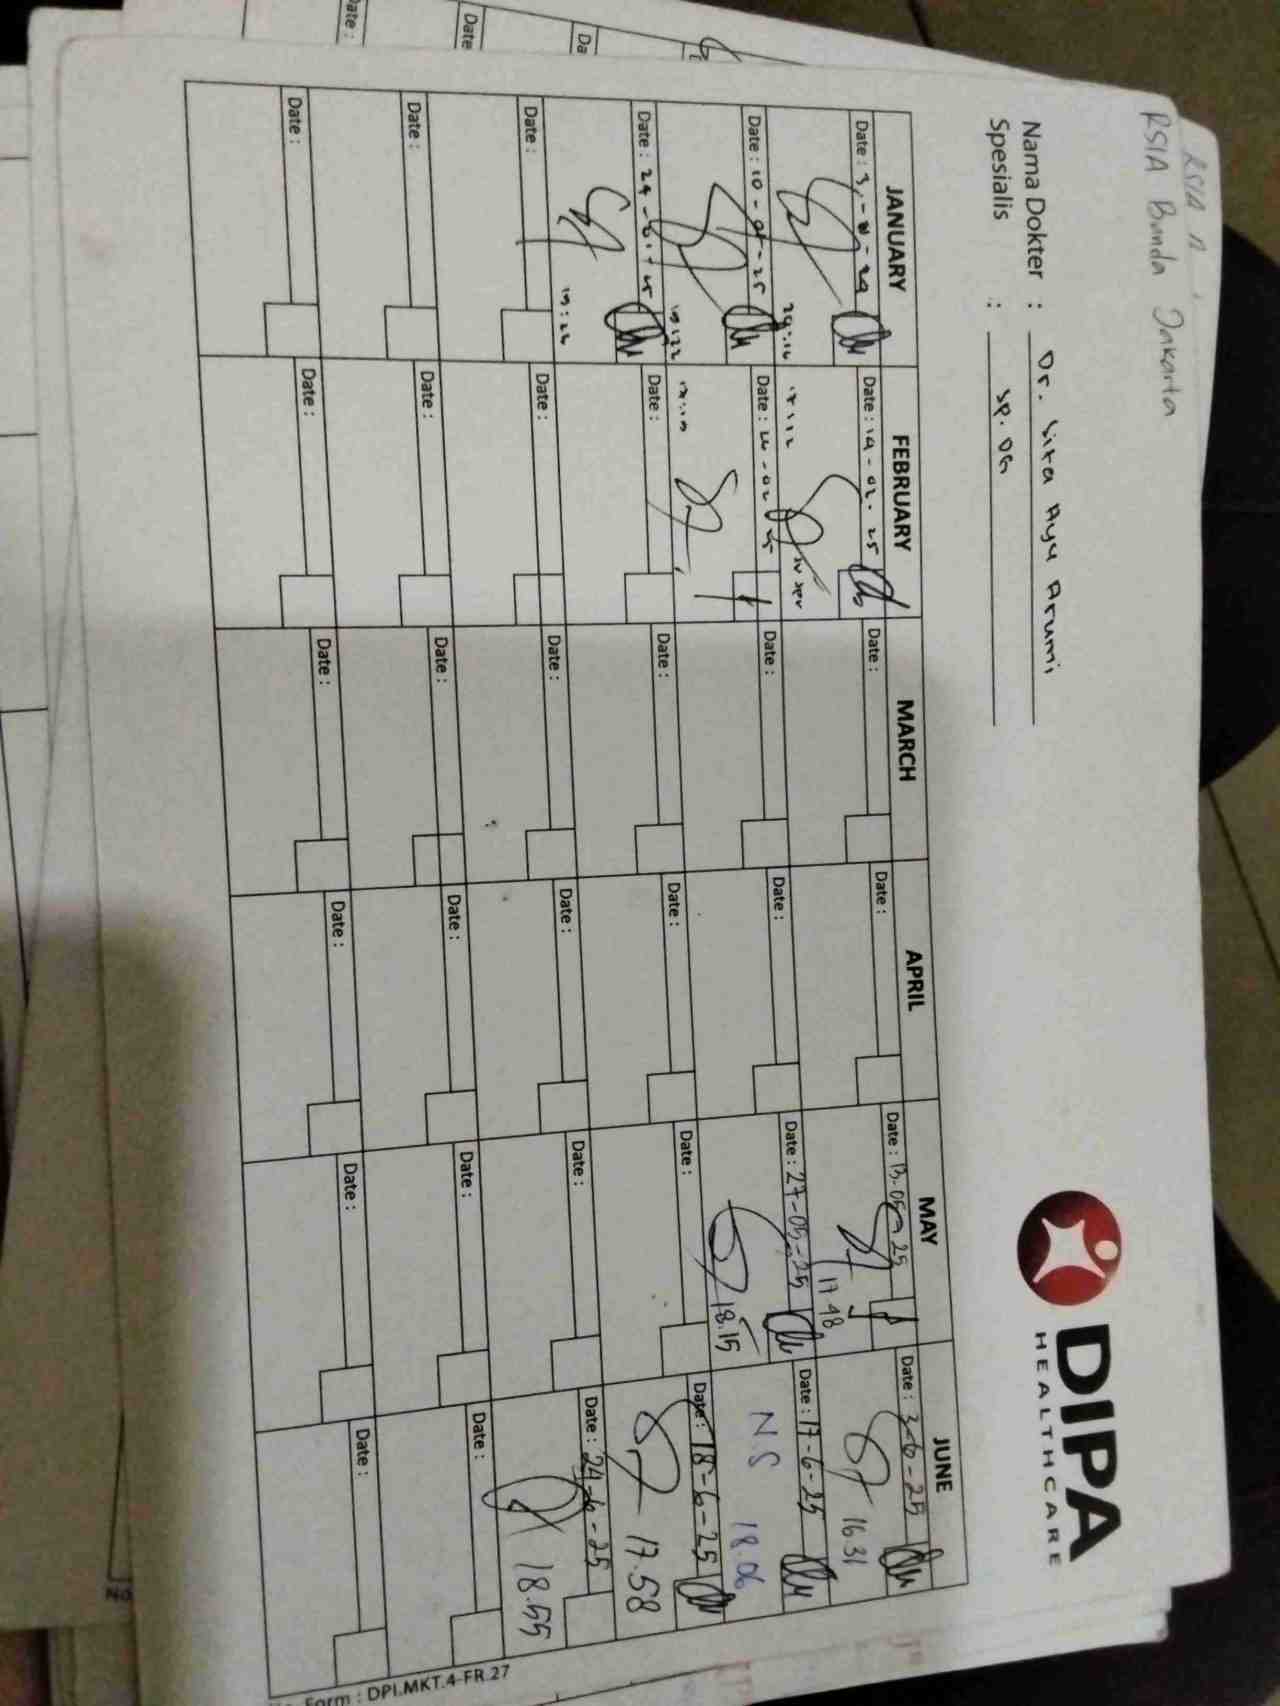 RSIA Bunda Jakarta
DIPA
HEALTHCARE
Nama Dokter : Dr. Sita Ayu Arumi
Spesialis : Sp. OG
JANUARY FEBRUARY MARCH APRIL MAY JUNE
Date : Date : 14-02-25 Date : Date : Date : 13-05-25 Date : 3-6-25
17:12 17.48 16.31
Date : 10-01-25 Date : Date : Date : Date : 27-05-25 Date : 17-6-25
18.15 N.S 18.06
Date : 24-01-25 Date : Date : Date : Date : Date : 18-6-25
17.58
Date : Date : Date : Date : Date : Date : 24-6-25
18.55
Date : Date : Date : Date : Date : Date :
Date : Date : Date : Date : Date : Date :
Form : DPI.MKT.4-FR.27